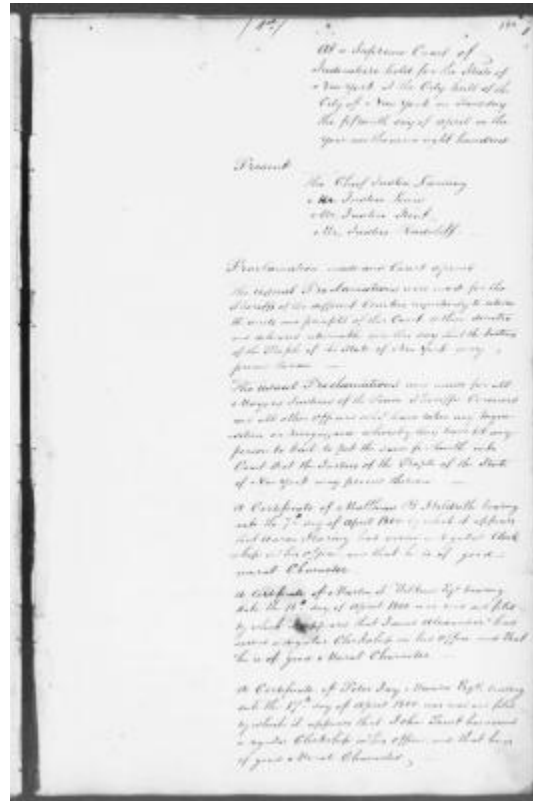 At a Supreme Court of
Judicature held for the State of
New York at the City Hall of the
City of New York on Tuesday
the fifteenth day of April in the
year one thousand eight hundred
Present
The Chief Justice Lansing
Mr. Justice Lewis
Mr. Justice Kent
Mr. Justice Radcliff
Proclamation made and Court opened
The usual Proclamations were made for the
Sheriffs of the different Counties respectively to return
the writs and of this Court to them directed
and delivered returnable on this day that the Justices
of the People of the State of New York may
proceed thereon
The usual Proclamations were made for all
Mayors Justices of the Peace Sheriffs Coroners
and all other officers who have taken any
or Recognizance whereby they have let any
person to bail to put the same forthwith into
Court that the Justices of the People of the State
of New York may proceed thereon
A Certificate of B Hildreth bearing
date the 7th day of April 1800 by which it appears
that Aaron had served a regular Clerk
ship in his office and that he is of good
moral Character
A Certificate of Martin S Wilkins Esqr bearing
date the day of April 1800 was read and filed
by which it appears that James Alexander had
served a regular Clerkship in his office and that
he is of good Moral Character
A Certificate of Peter Jay Munro Esqr bearing
date the 17th day of April 1800 was read and filed
by which it appears that John has served
a regular Clerkship in his office and that he is
of good Moral Character